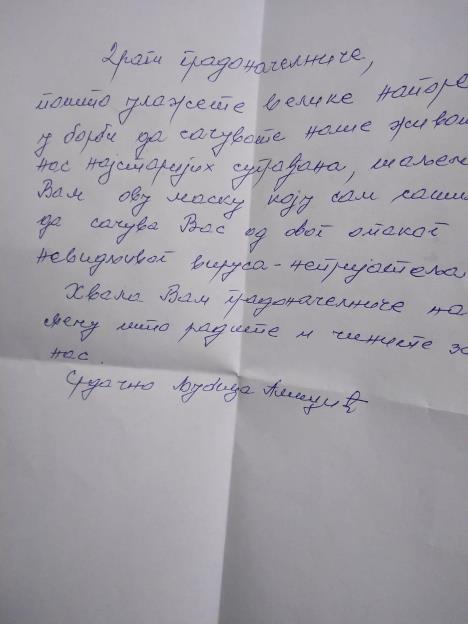 Драги градоначелниче,
пошто улажете велике напоре
у борби да сачувате наше живот
нас најстаријих суграђана, шаљем
Вам ову маску коју сам сашил
да сачува Вас од овог опаког
невидљивог вируса-непријатеља
Хвала Вам градоначелниче на
свему што радите и чините за
нас.
Срдачно Љубица